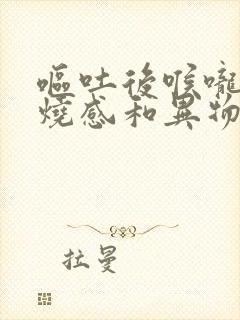 嘔吐後喉嚨
燒感和異物
拉曼